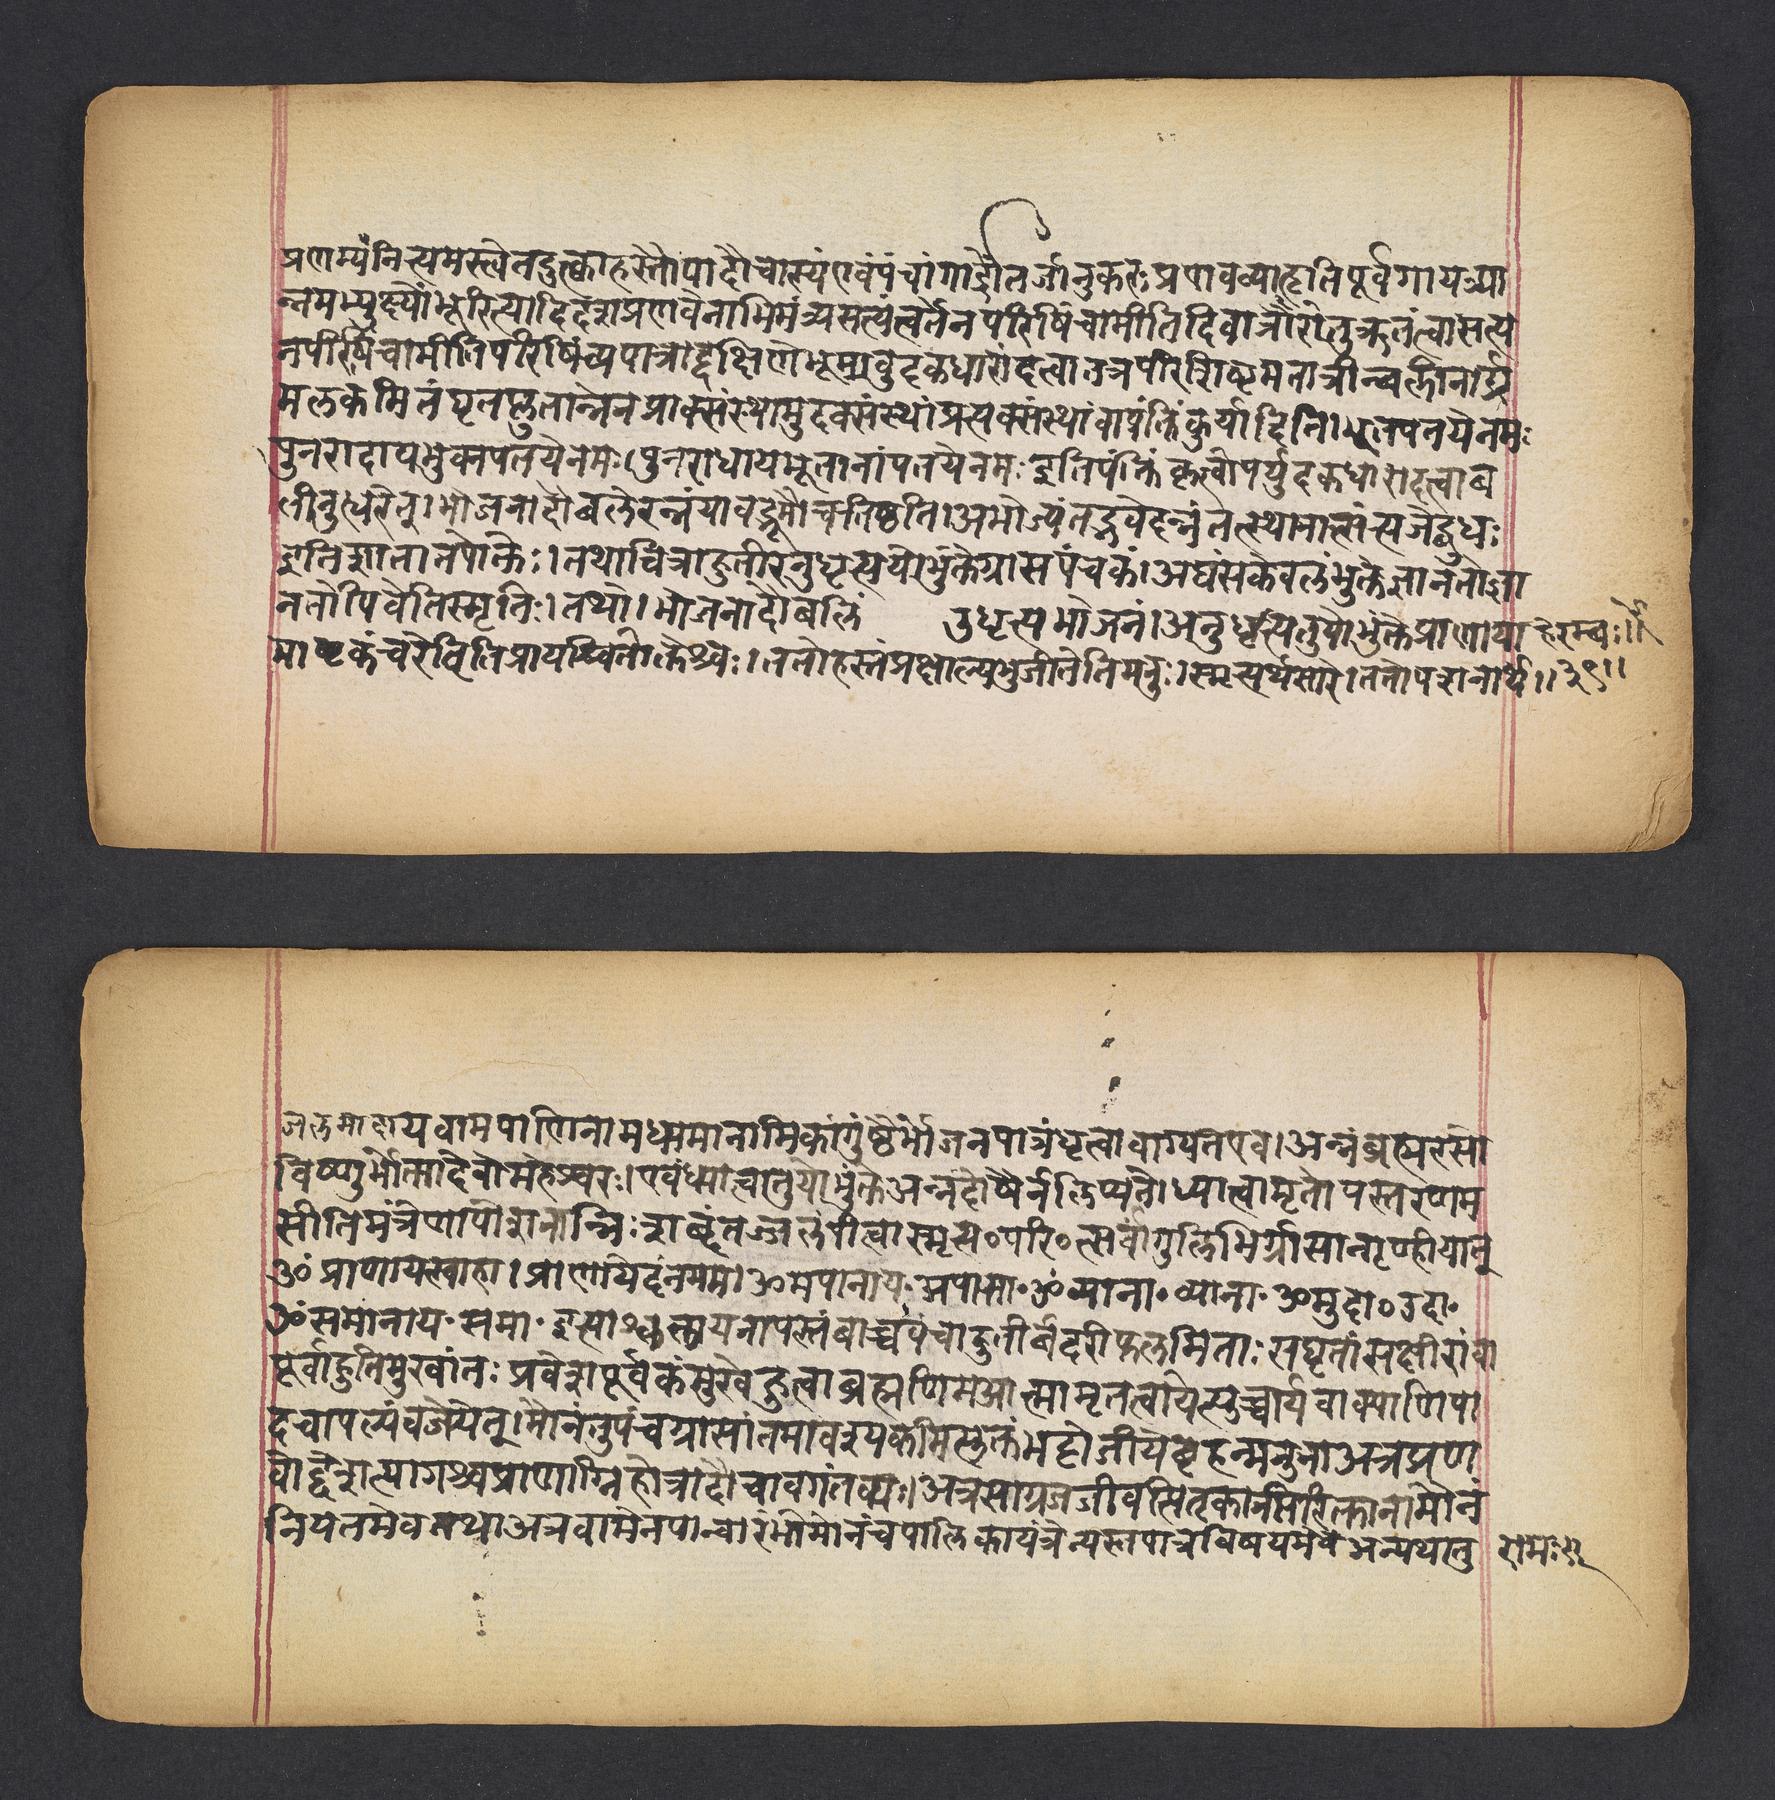 प्रणम्यंनित्यमस्त्वेतदुत्क्वाहस्तौपादौचास्यंएवंपंचांगार्द्रौतर्जानुकरुःप्रणवव्याहृतिपूर्वगायत्र्या
न्नमभ्युक्ष्यॐभूरित्यादिदशप्रणवेनाभिमंत्र्यसत्यंत्वर्तेनपरिषिंचामीतिदिवारात्रौतुऋतंत्वासत्ये
नपरिषिंचामीतिपरिषिंच्यपात्राद्दक्षिणेभूमावुदकधारांदत्वातत्रपरिशिष्टमन्नात्रीन्बलीनार्द्रा
मलकमितंघृतप्लुतान्नेनप्राक्संस्थामुदक्संस्थांप्रत्यक्संस्थांवापंक्तिंकुर्यादिति।भूतपतयेनमः
पुनरादायभुवनपतयेनमः।पुनराधायभूतानांपतयेनमःइतिपंक्तिंकृत्वोपर्युदकधारादत्वाब
लीनुत्धरेत्।भोजनादौबलेरन्नंयावद्भूमौचतिष्ठति।अभोज्यंतद्भवेदन्नंतत्स्थानात्संत्यजेद्बुधः
इतिशातातपोक्तेः।तथाचित्राहुतीरनुधृत्ययोभुंक्तेग्रासपंचकं।अघंसकेवलंभुंक्तेज्ञानतोज्ञा
नतोपिवेतिस्मृतिः।तथा।भोजनादौबलिं उधृत्यभोजनं।अनुधृत्यतुयोभुंक्तेप्राणाया हेरम्बः।।
माष्टकंचरेदितिप्रायश्चित्तोक्तेश्च।ततोहस्तंप्रक्षाल्यभुंजीतेतिमनुः।स्मृत्यर्थसारे।ततोपशनार्थं।।३९।।
जलमादायवामपाणिनामध्यमानामिकांगुष्ठैर्भोजनपात्रंधृत्वावाग्यतएव।अन्नंब्रह्मरसो
विष्णुर्भोक्तादेवोमहेश्वरः।एवंध्यात्वातुयोभुंक्तेअन्नदोषैर्नलिप्यते।ध्यात्वामृतोपस्तरणम
सीतिमंत्रेणापोशनान्निःशब्दंतज्जलंपीत्वास्मृस०परि०त्सर्वांगुलिभिर्ग्रासानाृण्हीयात्
ॐप्राणायस्वाहा।प्राणायेदंनमम।ॐमपानाय॰अपाना॰ॐव्याना॰व्याना॰ॐमुदा०उदा॰
ॐसमानाय॰समा॰इत्याश्वलायनापस्तंबाच्चपंचाहुतीर्बदरीफलमिताःसघृतांसक्षीरांवा
पूर्वाहुतिमुखांतःप्रवेशपूर्वकंमुखेहुत्वाब्रह्मणिमआत्मामृतत्वायेत्युच्चार्यवाक्पाणिपा
दचापल्यंवर्जयेत्।मौनंतुपंचग्रासांतमावश्यकमित्युक्तंभट्टोजीयेबृहन्मनुनाअत्रप्राण
योद्देशात्यागश्चप्राणाग्निहोत्रादौचावगंतव्यः।अत्रसाग्रजजीवत्पितृकानतिरिक्तानांमौनं
नियतमेवतथाअत्रवामेनपान्वारंभोमौनंचपालिकायंत्रेन्यस्तपात्रविषयमेवअन्यथातु रामः